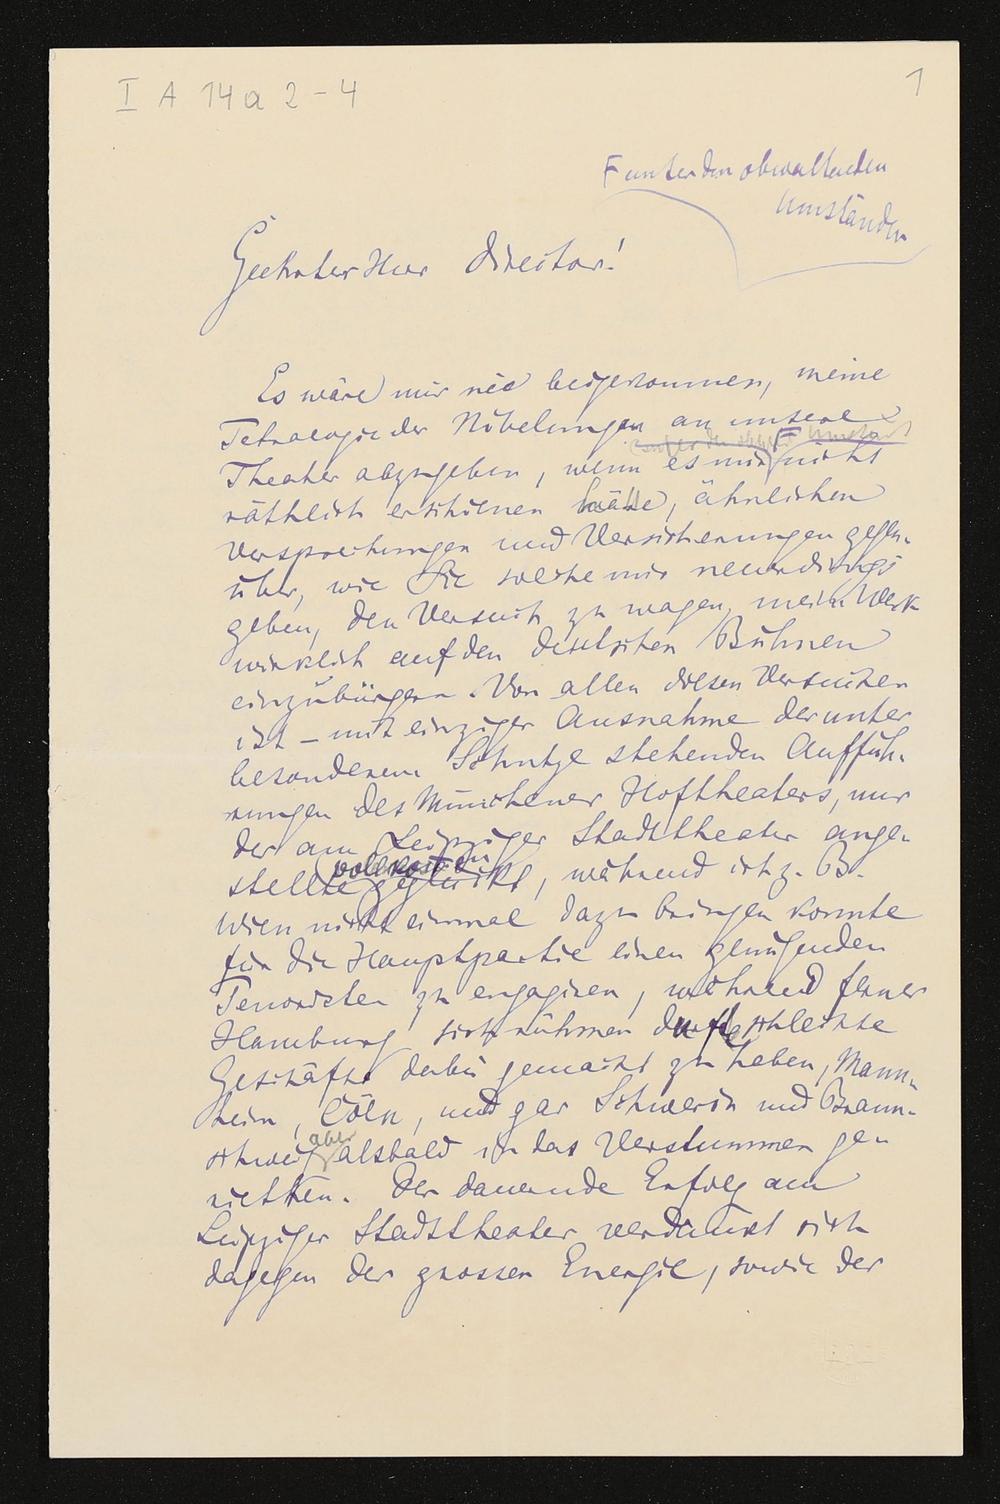 I A 14a 2-4
1
F unter den obwaltenden
Umständen
Geehrter Herr Director!
Es wäre mir nie beigekommen, meine
Tetralogie der Nibelungen an unsere
unter den Umstän
Theater abzugeben, wenn es mir F nicht
räthlich erschienen wäre, ähnlichen
Versprechungen und Versicherungen gegen-
über, wie Sie solche mir neuerdings
geben, den Versuch zu wagen, mein Werk
wirklich auf den deutschen Bühnen
einzubürgern. Von allen diesen Versuchen
ist – mit einziger Ausnahme der unter
besonderem Schutze stehenden Auffüh-
rungen des Münchener Hoftheaters, nur
der am Leipziger Stadttheater ange-
stellte geglückt, während ich z. B.
Wien nicht einmal dazu bringen konnte
für die Hauptpartie einen genügenden
Tenoristen zu engagiren, während ferner
Hamburg sich rühmen durfte schlechte
Geschäfte dabei gemacht zu haben, Mann-
heim, Cöln, und gar Schwerin und Braun-
schweig aber alsbald in das Verstummen ge-
riethen. Der dauernde Erfolg am
Leipziger Stadttheater verdankt sich
dagegen der grossen Energie, sowie der